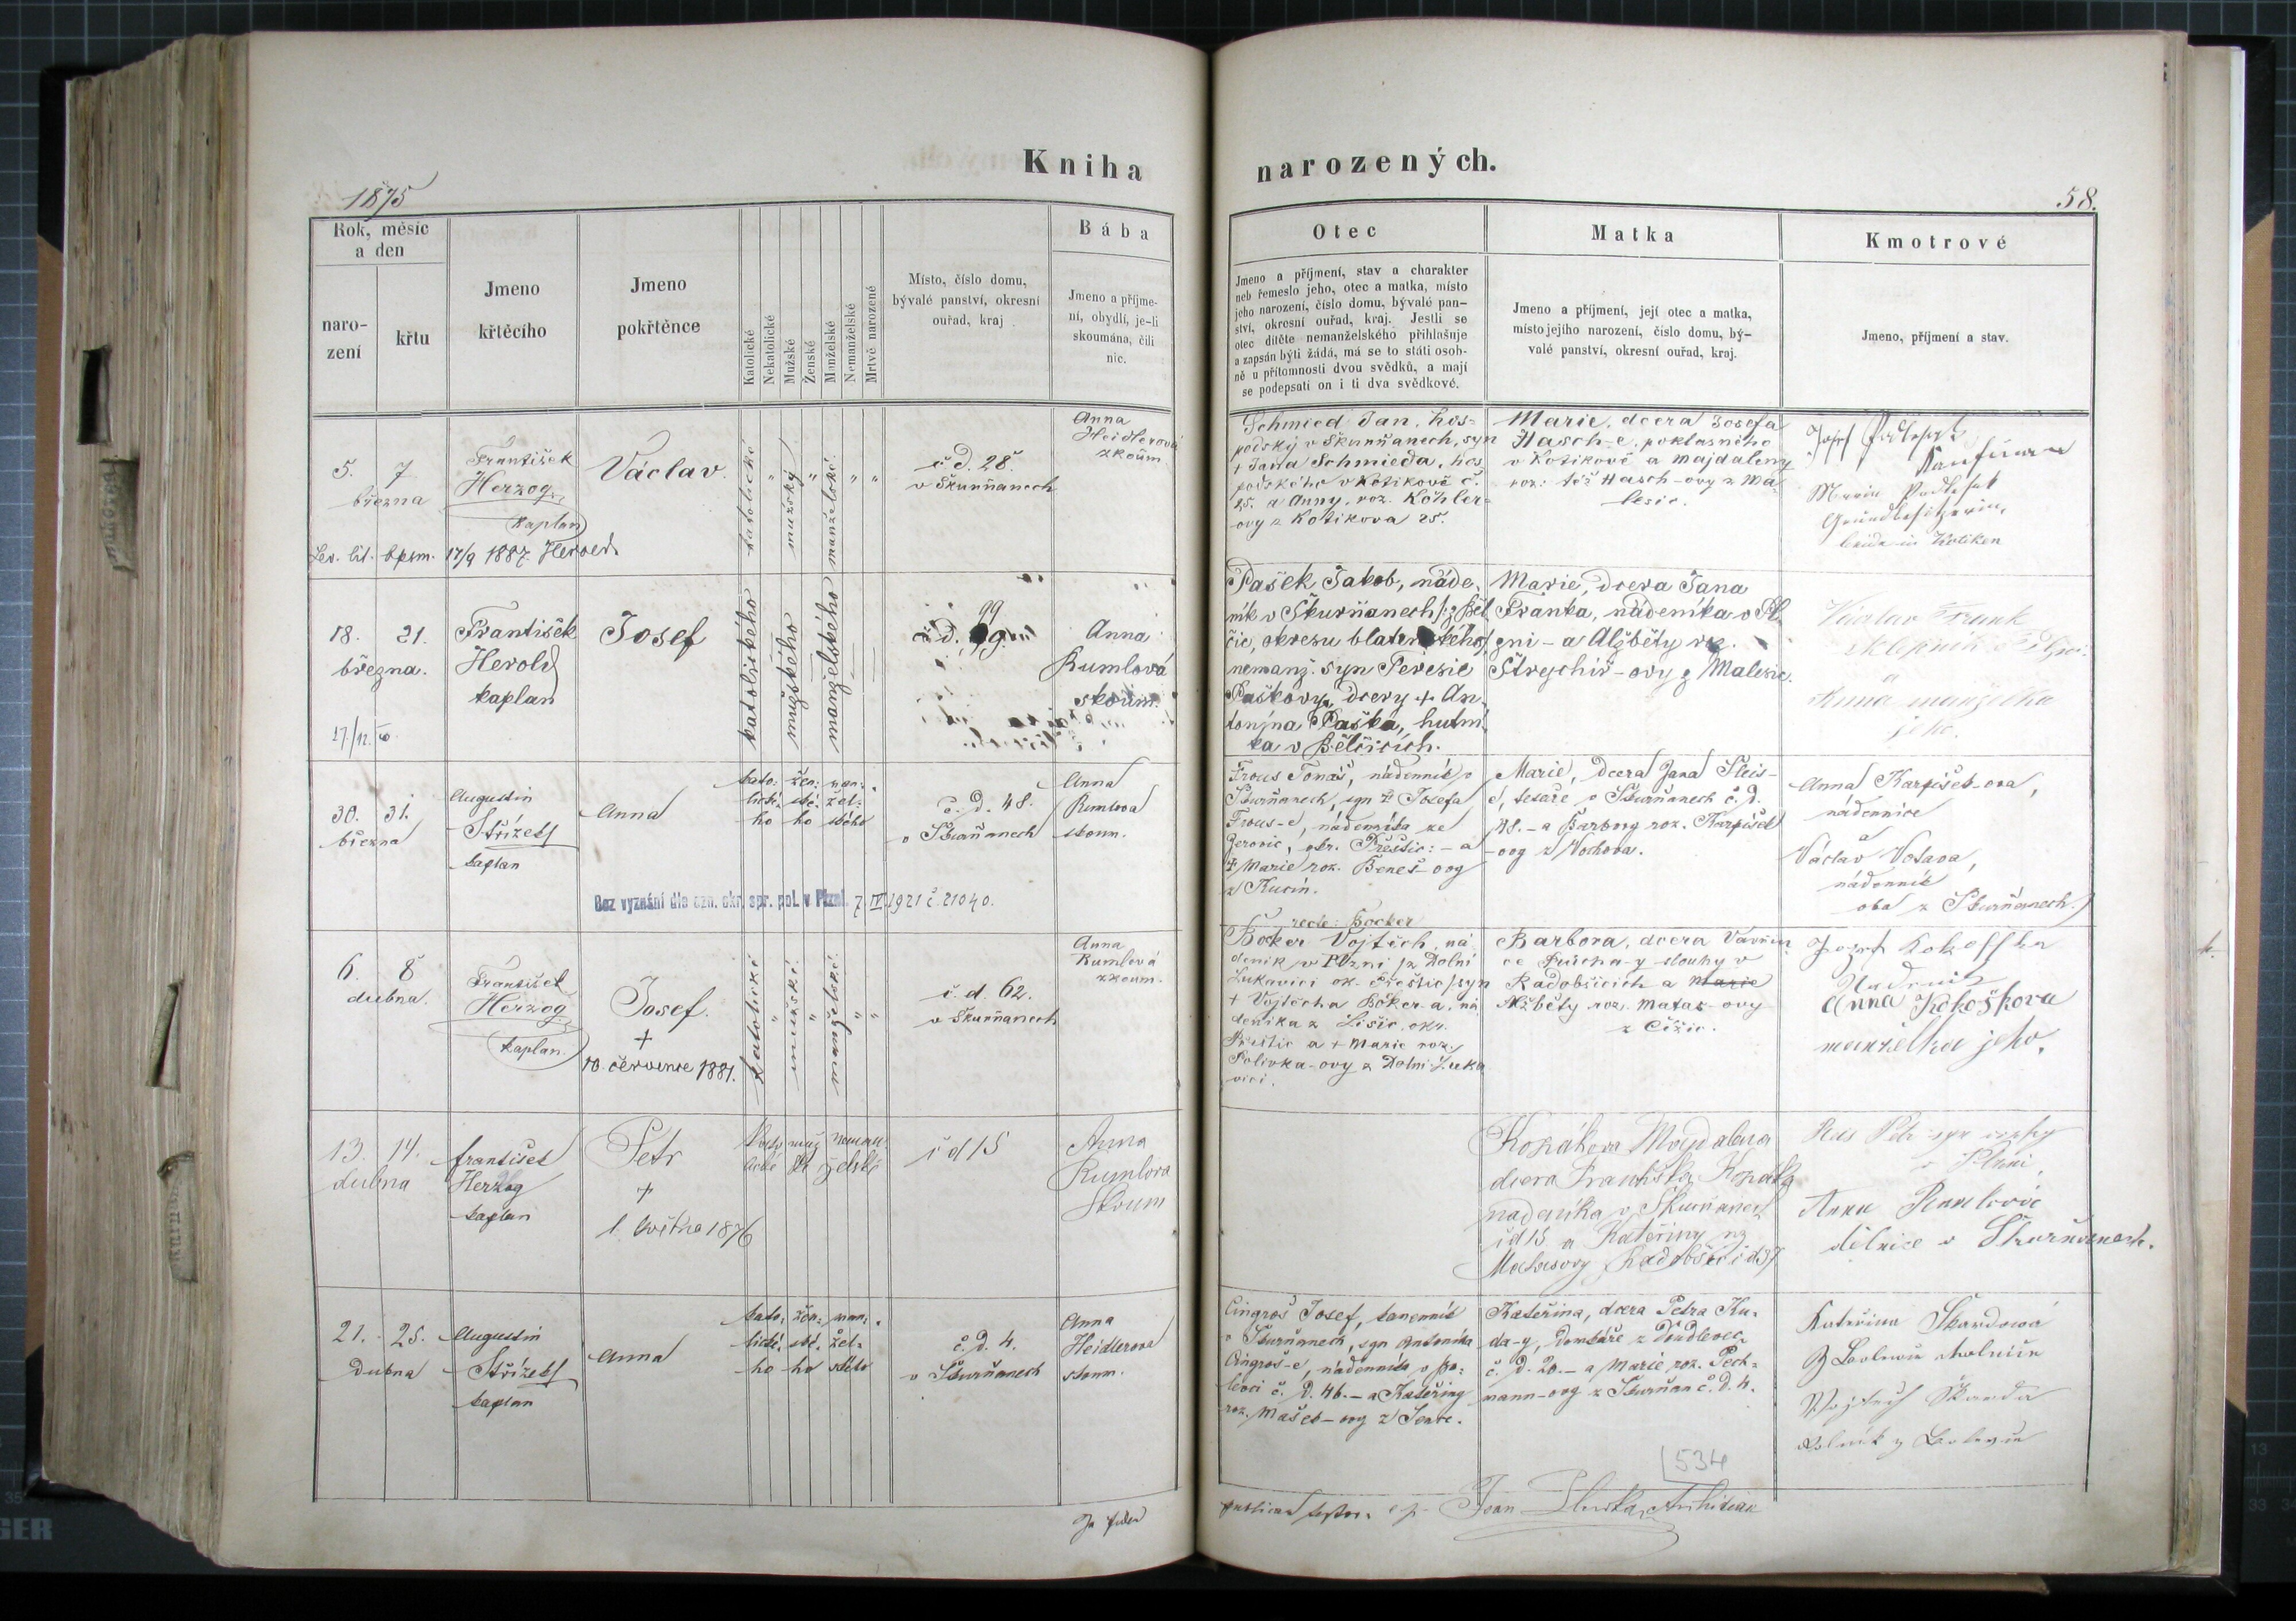 Kniha
narozených.
1875
58.
Rok, měsíc
a den
naro-
zení
křtu
Jmeno
křtěcího
Jmeno
pokřtěnce
Katolické
Nekatolické
Mužské
Ženské
Manželské
Nemanželské
Mrtvě narozené
Místo, číslo domu,
bývalé panství, okresní
ouřad, kraj
Bába
Jmeno a příjme-
ní, obydlí, je-li
skoumána, čili
nic.
Otec
Jmeno a příjmení, stav a charakter
neb řemeslo jeho, otec a matka, místo
jeho narození, číslo domu, bývalé pan-
ství, okresní ouřad, kraj. Jestli se
otec dítěte nemanželského přihlašuje
a zapsán býti žádá, má se to státi osob-
ně u přítomnosti dvou svědků, a mají
se podepsati on i ti dva svědkové.
Matka
Jmeno a příjmení, její otec a matka,
místo jejího narození, číslo domu, bý-
valé panství, okresní ouřad, kraj.
Kmotrové
Jmeno, příjmení a stav.
5. 7
března
František
Herzog
kaplan
Václav.
katolické
mužský
manželské
č. d. 28.
v Skurňanech
Anna
Heidlerová
zkoum.
17/9 1887. Herold
Schmied Jan, hos-
podský v Skurňanech, syn
+ Jana Schmieda, hos
podského v Kotikově č.
25. a Anny, roz. Köhler-
ovy z Kotikova 25.
Marie, dcera Josefa
Hasch-e, poklasného
v Kotikově a Majdaleny
roz. též Hasch-ovy z Ma-
lesic.
Josef
Marie
18. 21.
března.
František
Herold
kaplan
Josef
katolického
mužského
manželského
99
č. d.
Anna
Rumlová
skoum.
Pašek Jakob, náde-
ník v Škurňanech /: z Běl
čic, okresu blatenského/
nemanž. syn Terezie
Paškovy, dcery + An
tonína Paška, hutní
ka v Bělčicích.
Marie, dcera Jana
Franka, nádeníka v Pl
zni - a Alžběty roz.
Strychíř-ovy z Malesic.
Václav Frank
a
Anna manželka
jeho.
30. 31.
března
Augustin
Střízek
kaplan
Anna
kato- žen- man-
lické- ské- žel-
ho ho ského
č. d. 48.
v Skurňanech
Anna
Rumlova
skoum.
Bez vyznání dle ozn. okr. spr. pol. v Plzni 7. IV 1921 č. 21040.
Frous Tomáš, nádenník v
Skurňanech, syn + Josefa
Frous-e, nádenníka ze
okr. Přeštic: - a
+ Marie roz. Beneš-ovy
z Kucín.
Marie, dcera Jana Fleis-
č. d.
48. - a Barbory roz. Karpíšek
-ovy z Vochova.
Anna Karpíšek-ova,
nádennice
a
Václav Votava,
nádenník
oba z Skurňanech.
6. 8
dubna.
František
Herzog
kaplan.
Josef.
+
10. července 1881.
katolické
mužské
manželské
č. d. 62.
v Skurňanech
Anna
Rumlová
zkoum.
recte: Bocker
Böcker Vojtěch, ná
deník v Plzni /z Dolní
Lukavici ok. Přeštic/ syn
+ Vojtěcha Böker-a, ná
deníka z Lišic, okr.
Přeštic a + Marie roz.
Polivka-ovy z Dolní Luka
vici.
Barbora, dcera Vavřin
ce Průcha-y slouhy v
Radobčicích a Marie
Alžběty roz. Matas-ovy
z Čižic.
Josef Kokoška
Anna Kokoškova
manželka jeho.
13. 14.
dubna
František
Herzog
kaplan
Petr
+
1. května 1876
č d 15
Anna
Rumlova
Skoum
Kopákova Majdalena
dcera Františka Kopáka
nadenika v Skurňanech
č d 15 a Kateřiny roz
Matasovy
Petr
v Plzni.
Anna
dělnice v Skurňanech.
21. 25.
Dubna
Augustin
Střízek
kaplan
Anna
kato- žen- man-
lické- ské- žel-
ho ho ského
č. d. 4.
v Skurňanech
Anna
Heidlerova
skoum.
Cingroš Josef, kamenník
v Skurňanech, syn Antonína
Cingroš-e, nádenníka v Bo-
levci č. d. 46. - a Kateřiny
roz. Mašek-ovy z Senec.
Kateřina, dcera Petra Ku-
da-y, domkáře z Doudlevec
č. d. 20. - a Marie roz. Pech-
mann-ovy z Skurňan č. d. 4.
Kateřina Škardová
Vojtěch Škarda
534
Jan